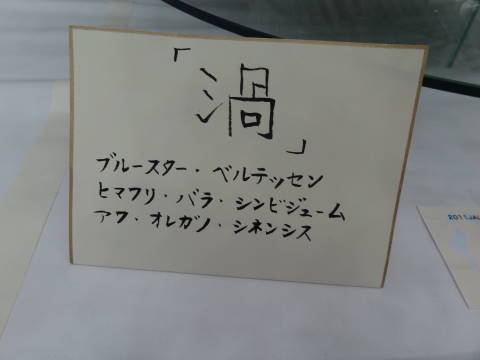 「渦」
ブルースター・ベルテッセン
ヒマワリ・バラ・シンビジューム
アワ・オレガノ・シネンシス
2011JAL